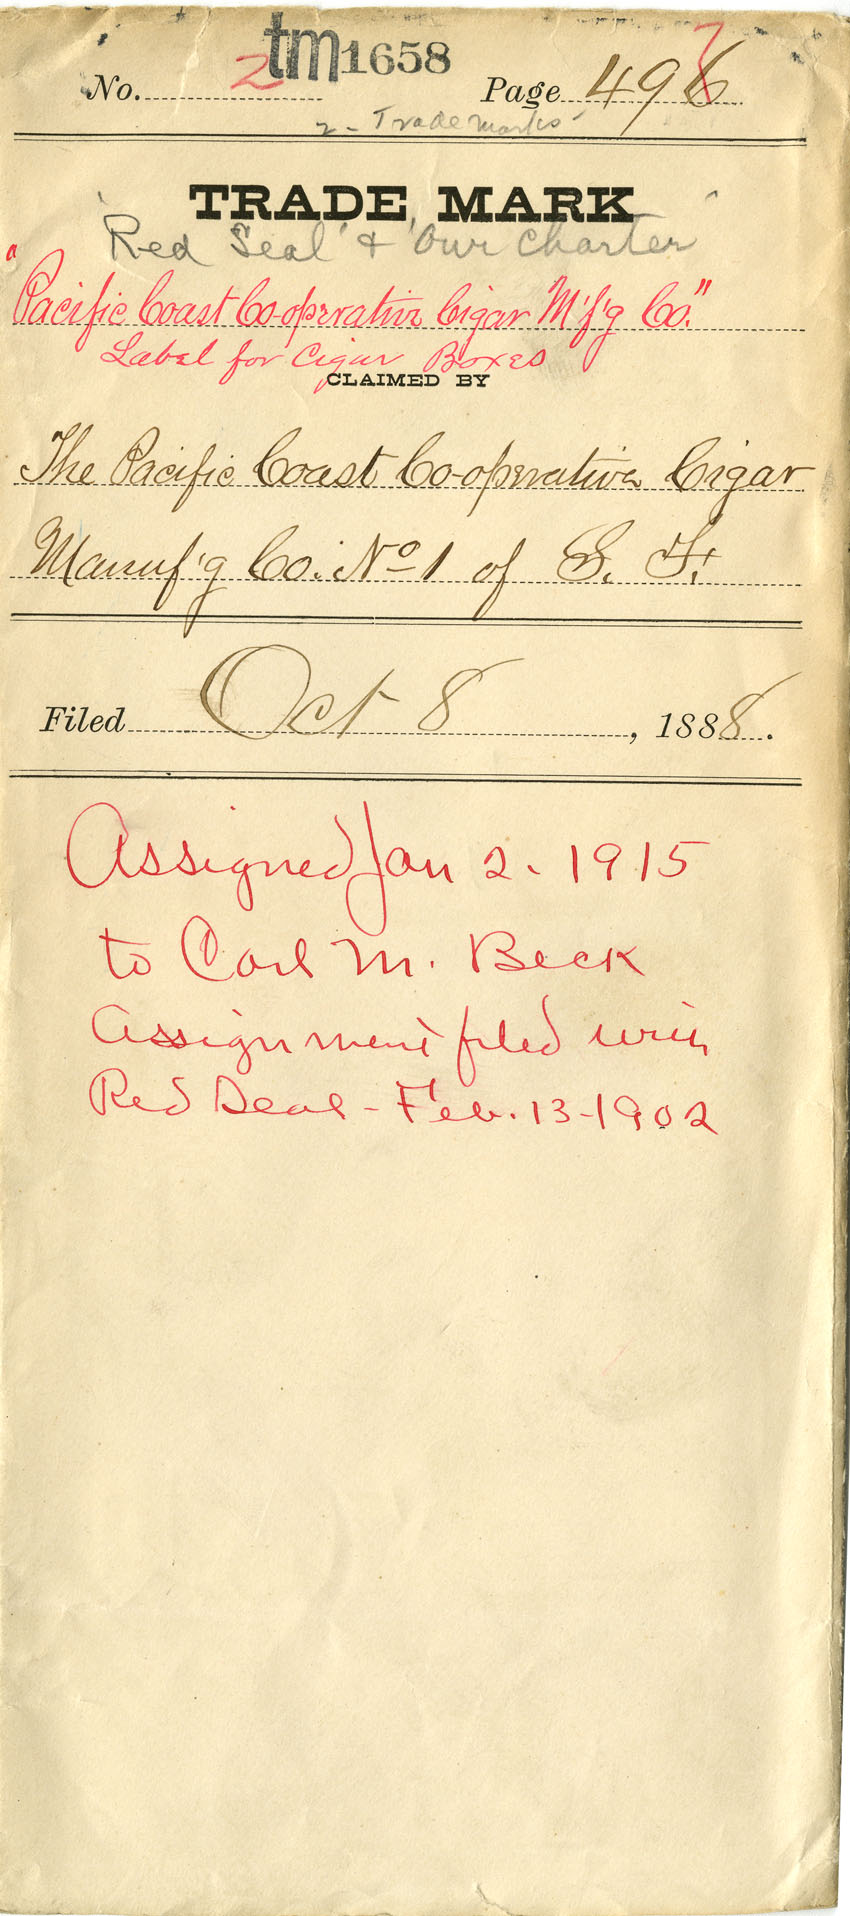 tm1658
No. 2 Page 496 7
2 - Trade marks -
TRADE MARK
"Red Seal" & "Our Charter"
"Pacific Coast Co-operative Cigar M'f'g Co."
Label for Cigar Boxes
CLAIMED BY
The Pacific Coast Co-operative Cigar
Manuf'g Co. No 1 of S. F.
Filed Oct 8, 1888.
Assigned Jan 2. 1915
to Carl M. Beck
Assignment filed with
Red Seal - Feb. 13-1902